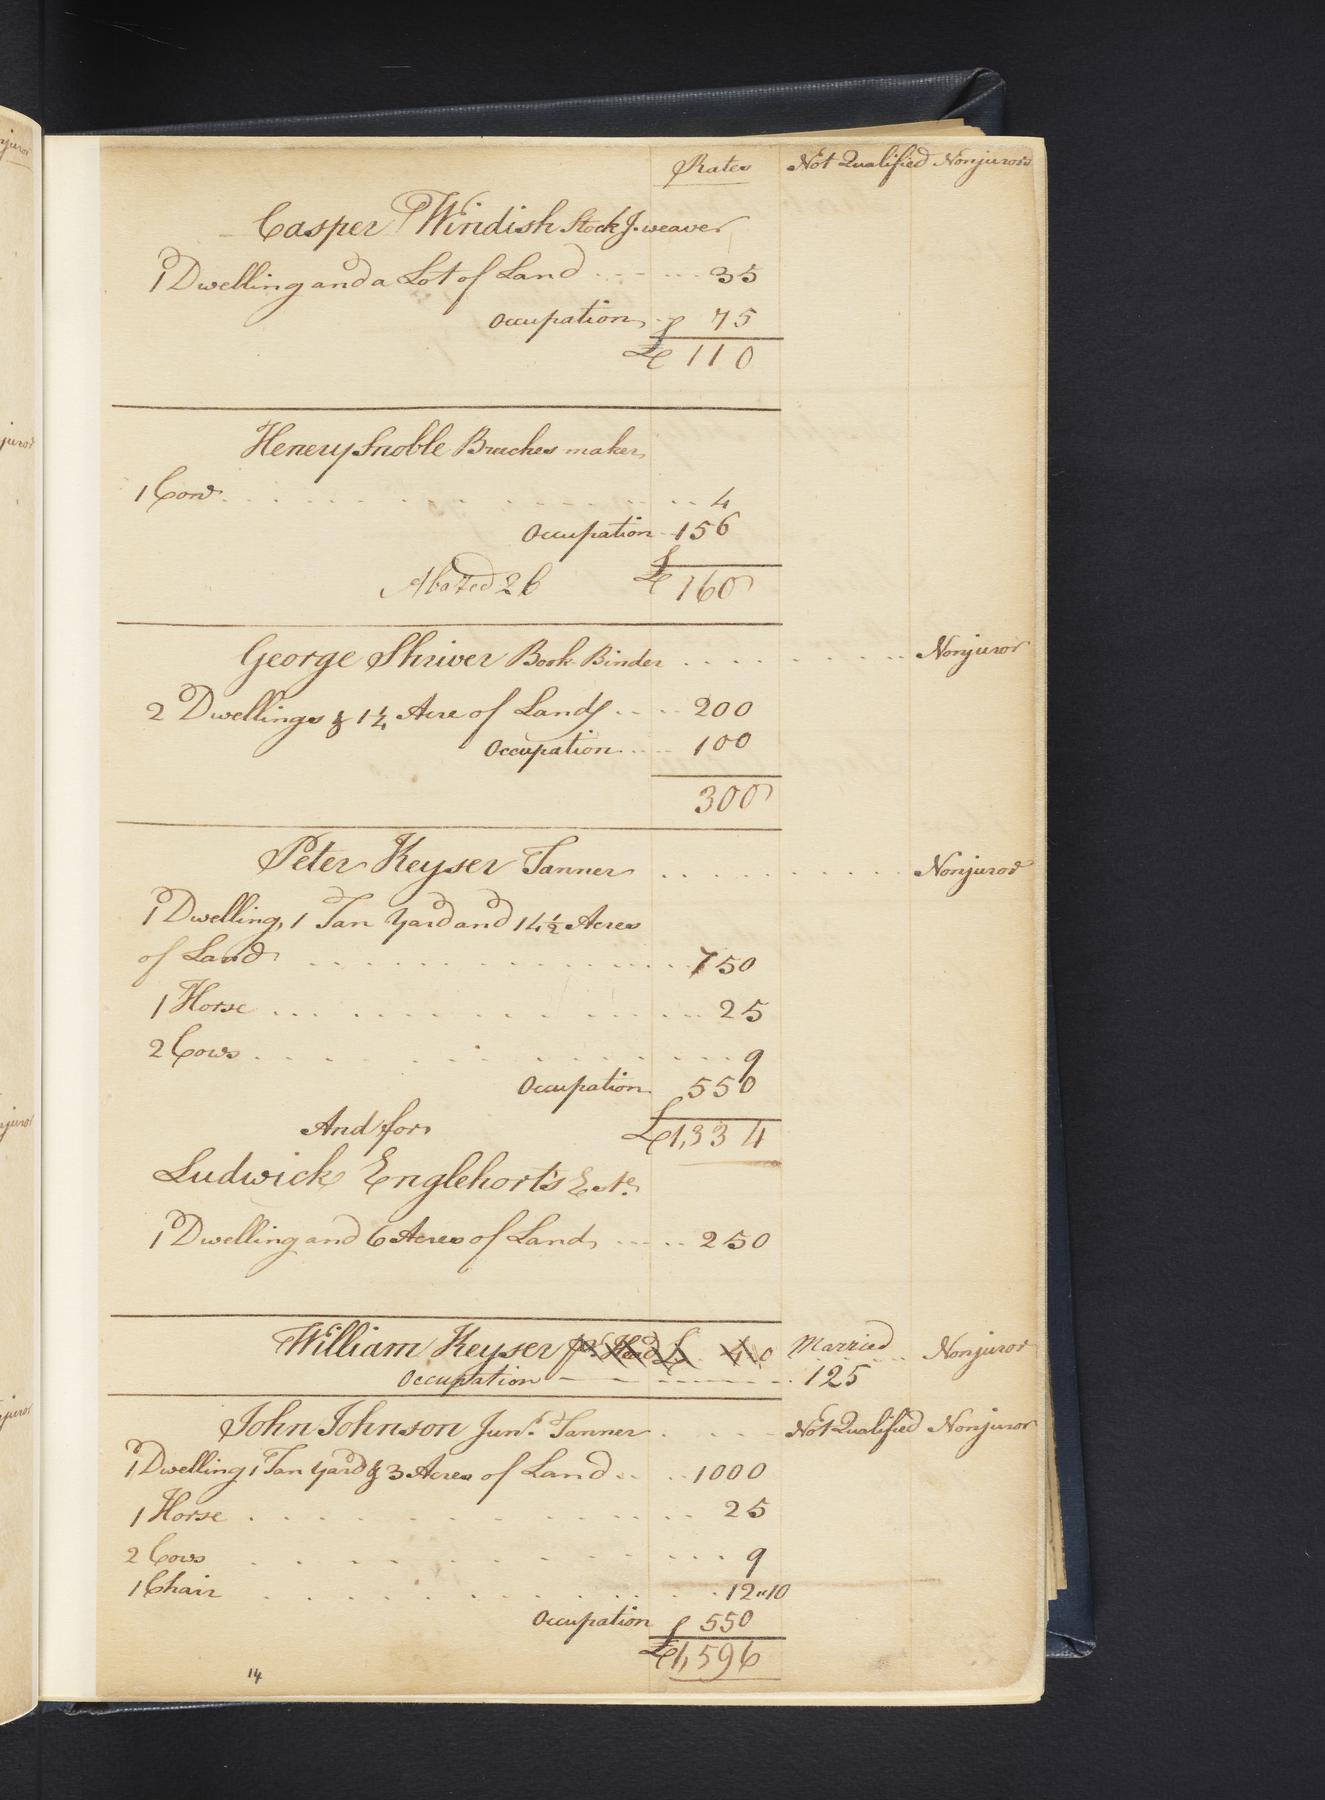 Rates Not Qualified Nonjurors
Casper Windish Stock J. weaver
1 Dwelling and a Lot of Land 35
Occupation 75
£ 110
Henery Snoble Breeches maker
1 Cow 4
Occupation 156
Abated 26 £ 160
George Shriver Book Binder Nonjuror
2 Dwellings & 1 1/4 Acre of Land 200
Occupation 100
300
Peter Keyser Tanner Nonjuror
1 Dwelling, 1 Tan Yard and 14 1/2 Acres
of Land 750
1 Horse 25
2 Cows 9
Occupation 550
And for £1,334
Ludwick Englehort's Este
1 Dwelling and 6 Acres of Land 250
William Keyser pr. Head £ 4.0 Married Nonjuror
Occupation 125
John Johnson Junr. Tanner Not Qualified Nonjuror
1 Dwelling 1 Tan Yard & 3 Acres of Land 1000
1 Horse 25
2 Cows 9
1 Chair 12"10
Occupation 550
£1,596
14